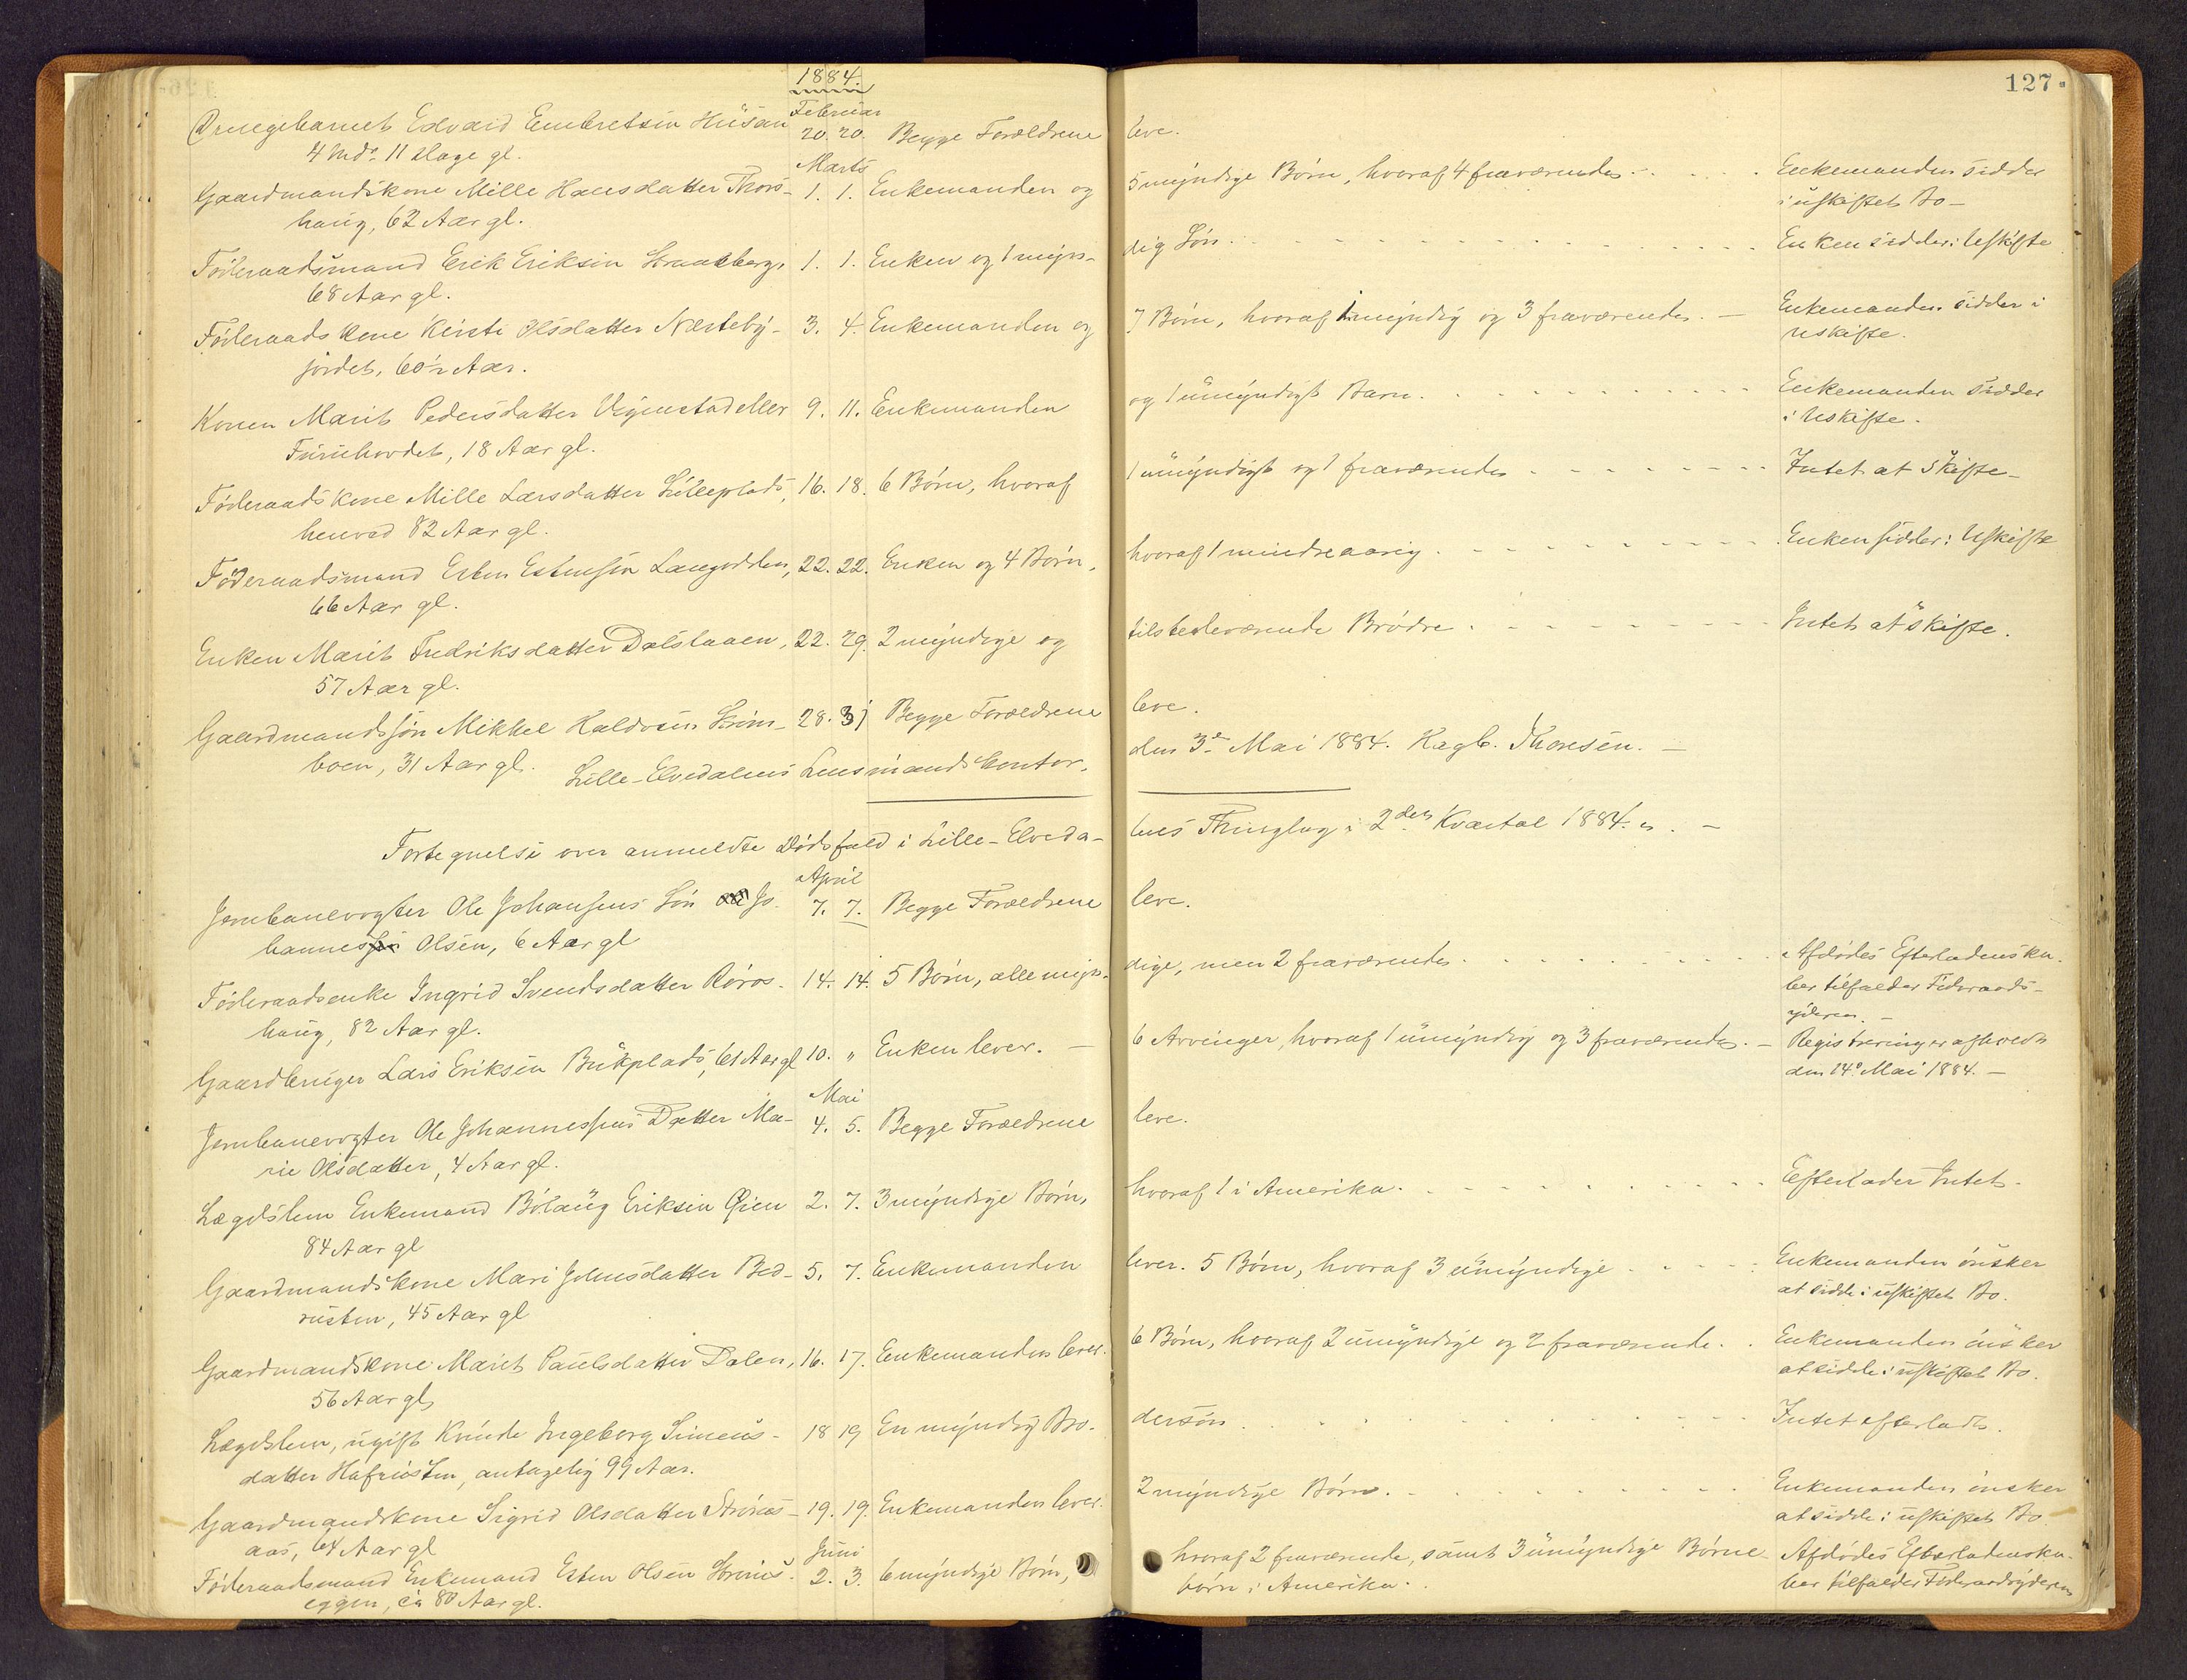 127
1884.
Februar
Drengebarnet Edvard Embretsen Husan 20. 20. Begge Forældrene leve.
4 Mdr. 11 Dage gl.
Marts
Gaardmandskone Mille Hansdatter Thors- 1. 1. Enkemanden og 5 myndige Børn, hvoraf 4 fraværende. Enkemanden sidder
haug, 62 Aar gl. i uskiftet Bo-
Föderaadsmand Erik Eriksen 1. 1. Enken og 1 myn- dig Søn. Enken sidder i Uskifte
68 Aar gl.
Föderaadskone Kirsti Olsdatter Nerteby- 3. 4. Enkemanden og 7 Børn, hvoraf 1 myndig og 3 fraværende. - Enkemanden sidder i
jordet, 60½ Aar. Uskifte.
Konen Marit Pedersdatter eller 9. 11. Enkemanden og 1 umyndigt Barn. Enkemanden sidder
Furuhovdet, 18 Aar gl. i Uskifte.
Föderaadskone Mille Larsdatter Lilleplads, 16. 18. 6 Børn, hvoraf 1 umyndigt og 1 fraværende Intet at skifte-
henved 82 Aar gl.
Föderaadsmand Esten Estensen Langodden, 22. 22. Enken og 4 Børn, hvoraf 1 mindreaarig. Enken sidder i Uskifte
66 Aar gl.
Enken Marit Fredriksdatter Dalslaaen, 22. 29. 2 myndige og tilstedeværende Brødre. Intet at skifte.
57 Aar gl.
Gaardmandssøn Mikkel Haldorsen Strøm- 28. 31 Begge Forældrene leve.
boen, 31 Aar gl.
Lille-Elvedalens Lensmandskontor, den 3die Mai 1884. Hagb. Thoresen. -
Fortegnelse over anmeldte Dødsfald i Lille-Elveda- lens Thinglag i 2det Kvartal 1884. -
April
Jernbanevogter Ole Johansens Søn Jo- 7. 7. Begge Forældrene leve.
hannes Olsen, 6 Aar gl
Föderaadsenke Ingrid Svendsdatter Røros- 14. 14. 5 Børn, alle myn- dige, men 2 fraværende. Afdødes Efterladenska-
haug, 82 Aar gl. ber tilfalder Föderaads-
yderen. -
Gaardbruger Lars Eriksen Brukplads, 61 Aar gl 10. " Enken lever. - 6 Arvinger, hvoraf 1 umyndig og 3 fraværende. - Registrering er afholdt
den 14de Mai 1884. -
Mai
Jernbanevogter Ole Johannessens Datter Ma- 4. 5. Begge Forældrene leve.
rie Olsdatter, 4 Aar gl.
Lægdslem Enkemand Eriksen Øien 2. 7. 3 myndige Børn, hvoraf 1 i Amerika. Efterlader Intet.
84 Aar gl
Gaardmandskone Mari Johnsdatter Bed- 5. 7. Enkemanden lever. 5 Børn, hvoraf 3 umyndige Enkemanden ønsker
rusten, 45 Aar gl at sidde i uskiftet Bo.
Gaardmandskone Marit Paulsdatter Dalen, 16. 17. Enkemanden lever. 6 Børn, hvoraf 2 umyndige og 2 fraværende. Enkemanden ønsker
56 Aar gl, at sidde i uskiftet Bo.
Lægdslem, ugift Kvinde Ingeborg Simens- 18 19 En myndig Bro- dersøn. Intet efterladt.
datter, antagelig 99 Aar.
Gaardmandskone Sigrid Olsdatter Strøms- 19. 19. Enkemanden lever. 2 myndige Børn. Enkemanden ønsker
aas, 64 Aar gl at sidde i uskiftet Bo
Juni
Föderaadsmand Enkemand Esten Olsen 2. 3. 6 myndige Børn, hvoraf 2 fraværende, samt 3 umyndige Børne- Afdødes Efterladenska-
eggen, ca 80 Aar gl. børn i Amerika. ber tilfalder Föderaadsyderen